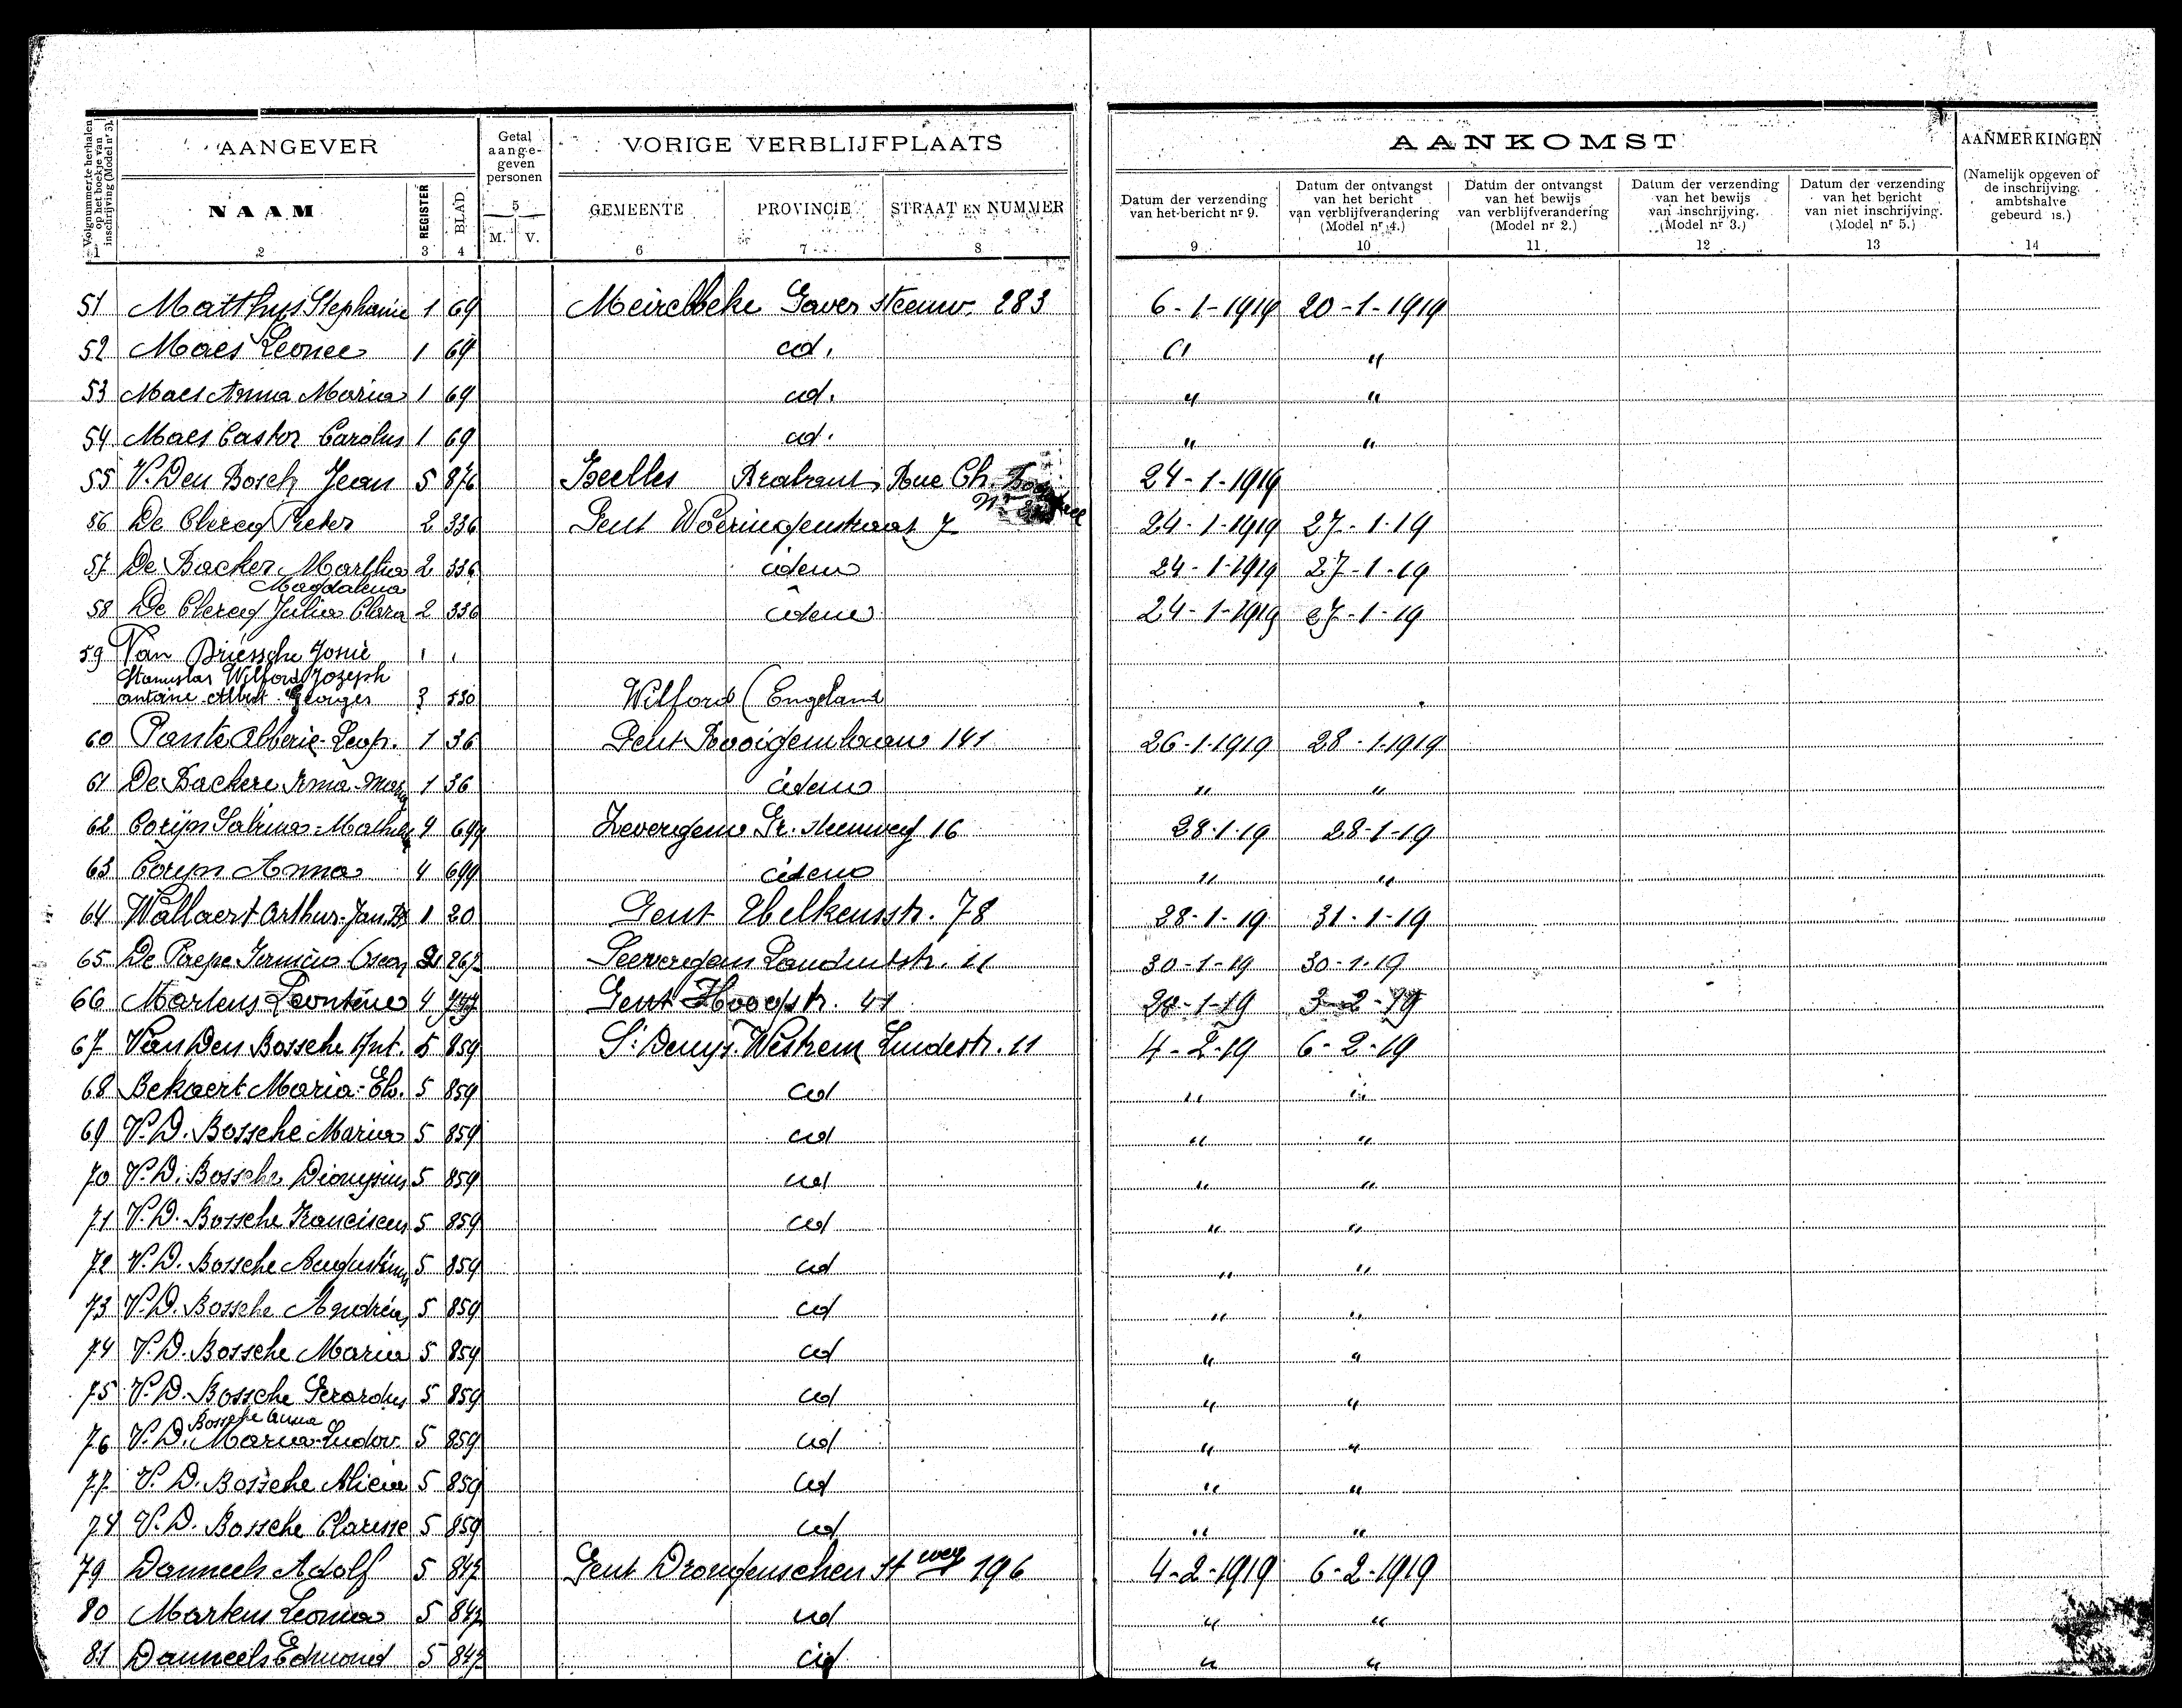 Volgnummer te herhalen op het boekje van inschrijving (Model nr 3).
AANGEVER
Getal aange- geven personen
VORIGE VERBLIJFPLAATS
AANKOMST
AANMERKINGEN
NAAM REGISTER BLAD 5 M. V.
GEMEENTE PROVINCIE STRAAT EN NUMMER
Datum der verzending van het bericht nr 9.
Datum der ontvangst van het bericht van verblijfverandering (Model nr 4.)
Datum der ontvangst van het bewijs van verblijfverandering (Model nr 2.)
Datum der verzending van het bewijs van inschrijving. (Model nr 3.)
Datum der verzending van het bericht van niet inschrijving. (Model nr 5.)
(Namelijk opgeven of de inschrijving ambtshalve gebeurd is.)
1 2 3 4 6 7 8 9 10 11 12 13 14
51 Matthys Stephanie 1 69 Meirelbeke Gaver steenw. 283 6-1-1919 20-1-1919
52 Maes Leonce 1 69 id. " "
53 Maes Anna Maria 1 69 id. " "
54 Maes Castor Carolus 1 69 id. " "
55 V. Den Bosch Jean 5 876 Ixelles Brabant Rue Ch. 24-1-1919
56 De Clercq Pieter 2 336 Gent Woeringenstraat 7 24-1-1919 27-1-19
57 De Backer Martha 2 336 idem 24-1-1919 27-1-19
Magdalena
58 De Clercq Julia Clara 2 336 idem 24-1-1919 27-1-19
59 Van Driessche Josué
Stanislas Wilford Jozeph
antoine Albert Georges 3 530 Wilford (England
60 Pante Alberic-Leop. 1 36 Gent Rooigemlaan 141 26-1-1919 28-1-1919
61 De Backere Irma-Maria 1 36 idem " "
62 Coryn Sabina-Mathilde 4 699 Zevergem Gr. steenweg 16 28-1-19 28-1-19
63 Coryn Anna 4 699 idem " "
64 Wallaert Arthur-Jan.Bt 1 20 Gent 78 28-1-19 31-1-19
65 De Paepe Oscar 2 267 11 30-1-19 30-1-19
66 Martens Leontine 4 747 Gent Hoogstr. 41 28-1-19 3-2-19
67 Van Den Bossche Ant. 5 859 St Denijs-Westrem Lindestr. 11 4-2-19 6-2-19
68 Bekaert Maria-El. 5 859 id " "
69 V.D. Bossche Maria 5 859 id " "
70 V.D. Bossche Dionysius 5 859 id " "
71 V.D. Bossche Franciscus 5 859 id " "
72 V.D. Bossche Augustinus 5 859 id " "
73 V.D. Bossche Andréas 5 859 id " "
74 V.D. Bossche Maria 5 859 id " "
75 V.D. Bossche Gerardus 5 859 id " "
Bossche Anna
76 V.D. Maria-Ludov. 5 859 id " "
77 V.D. Bossche Alicia 5 859 id " "
78 V.D. Bossche Clarisse 5 859 id " "
79 Danneels Adolf 5 847 Gent Drongenschen st weg 196 4-2-1919 6-2-1919
80 Martens Leonia 5 847 id " "
81 Danneels Edmond 5 847 id " "